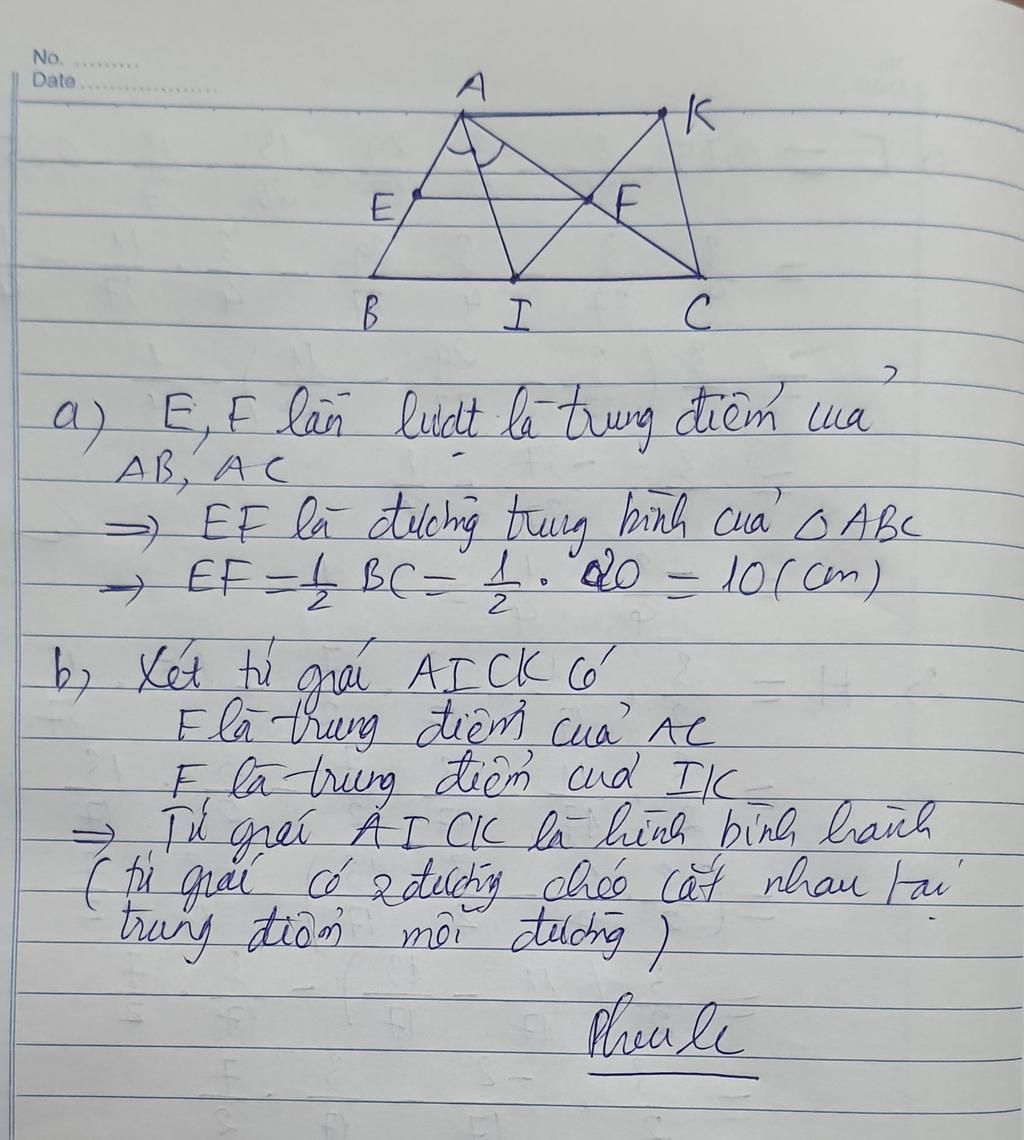 No. .........
Date ...................
A
K
E
F
B
I
C
a) E, F lần lượt là trung điểm của
AB, AC
=> EF là đường trung bình của △ ABC
=> EF = 1/2 BC = 1/2 . 20 = 10 (cm)
b, Xét tứ giác AICK có
F là trung điểm của AC
F là trung điểm của IK
=> Tứ giác AICK là hình bình hành
(tứ giác có 2 đường chéo cắt nhau tại
trung điểm mỗi đường)